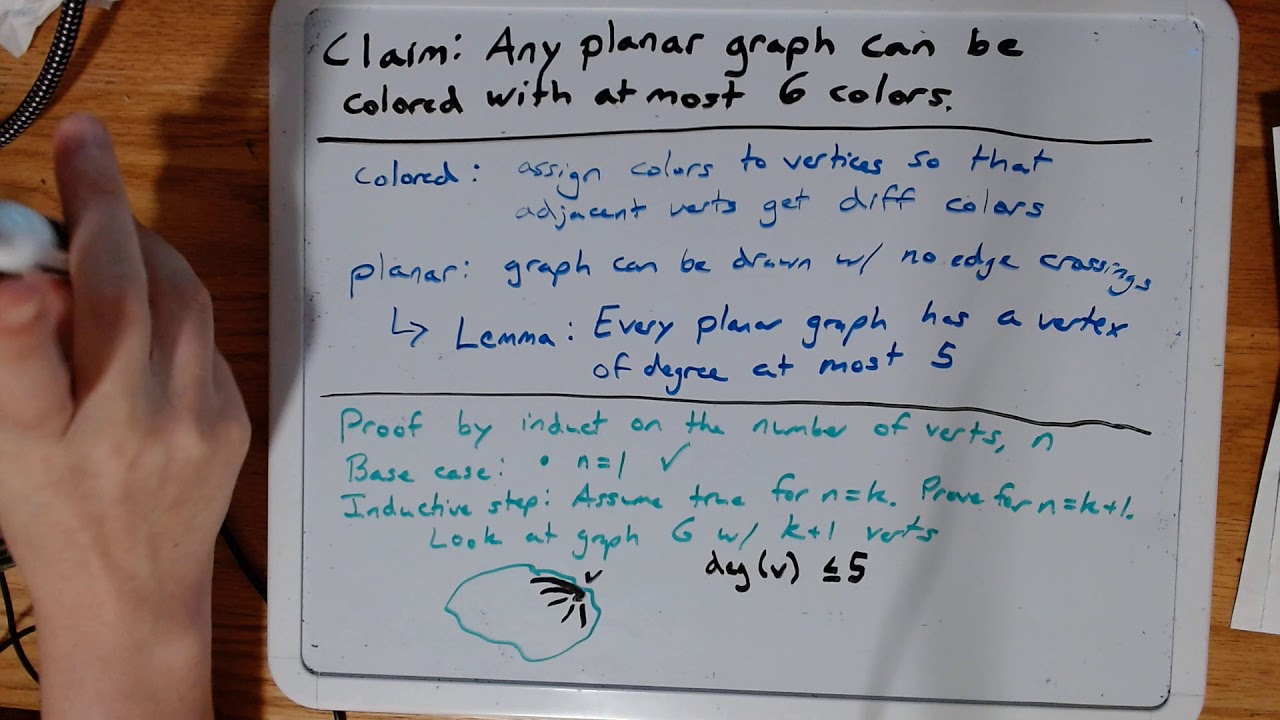 Claim: Any planar graph can be
colored with at most 6 colors.
colored: assign colors to vertices so that
adjacent verts get diff colors
planar: graph can be drawn w/ no edge crossings
↳ Lemma: Every planar graph has a vertex
of degree at most 5
Proof by induct on the number of verts, n
Base case: • n=1 ✓
Inductive step: Assume true for n=k. Prove for n=k+1.
Look at graph G w/ k+1 verts
v
deg(v) ≤5